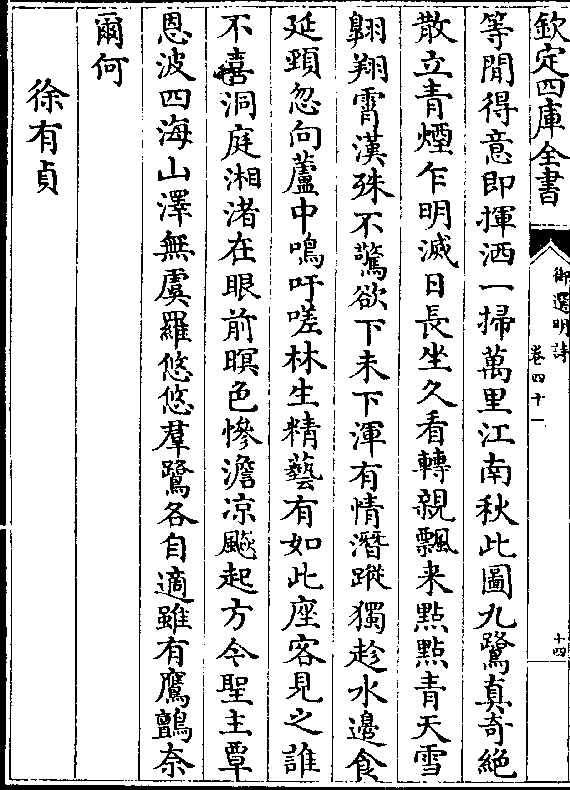 欽定四庫全書
御選明詩
卷四十一
十四
等閒得意即揮洒一掃萬里江南秋此圖九鷺真奇絶
散立青煙乍明滅日長坐久看轉親飄来點點青天雪
翱翔霄漢殊不驚欲下未下渾有情潛蹤獨趁水邊食
延頸忽向蘆中鳴吁嗟林生精藝有如此座客見之誰
不喜洞庭湘渚在眼前暝色慘澹凉颸起方今聖主覃
恩波四海山澤無虞羅悠悠羣鷺各自適雖有鷹鸇奈
爾何
徐有貞